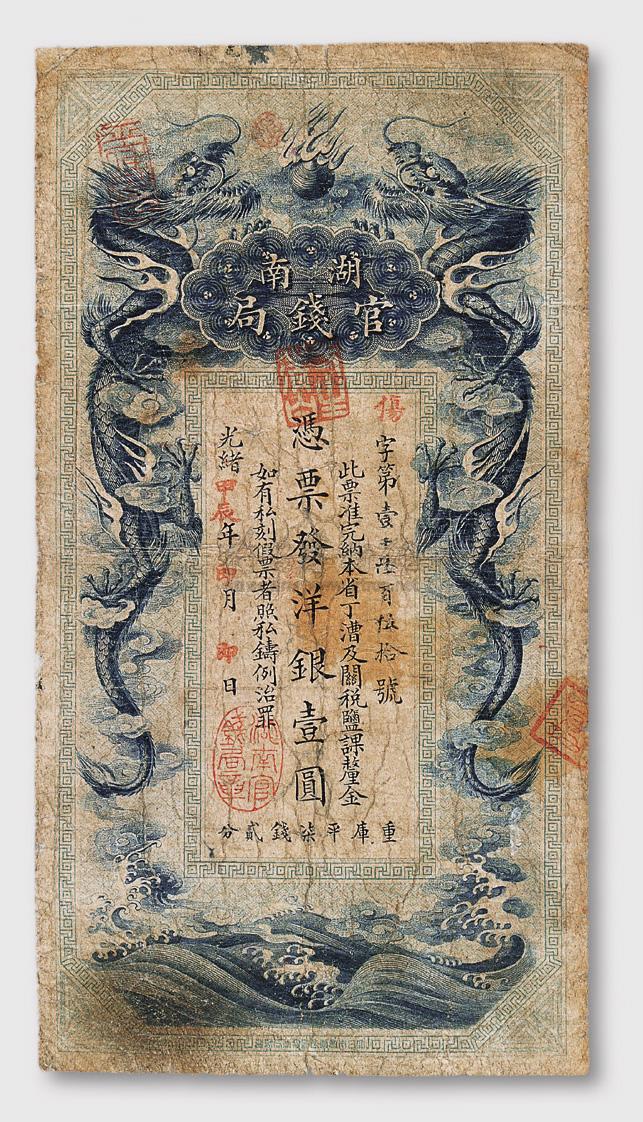 湖南
官錢局
傷字第壹千陸百伍拾號
此票准完納本省丁漕及關税鹽課釐金
憑票發洋銀壹圓
如有私刻假票者照私鑄例治罪
光緒甲辰年印月印日
重庫平柒錢貳分
湖南官錢局章